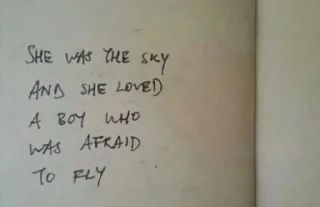 SHE WAS THE SKY
AND SHE LOVED
A BOY WHO
WAS AFRAID
TO FLY